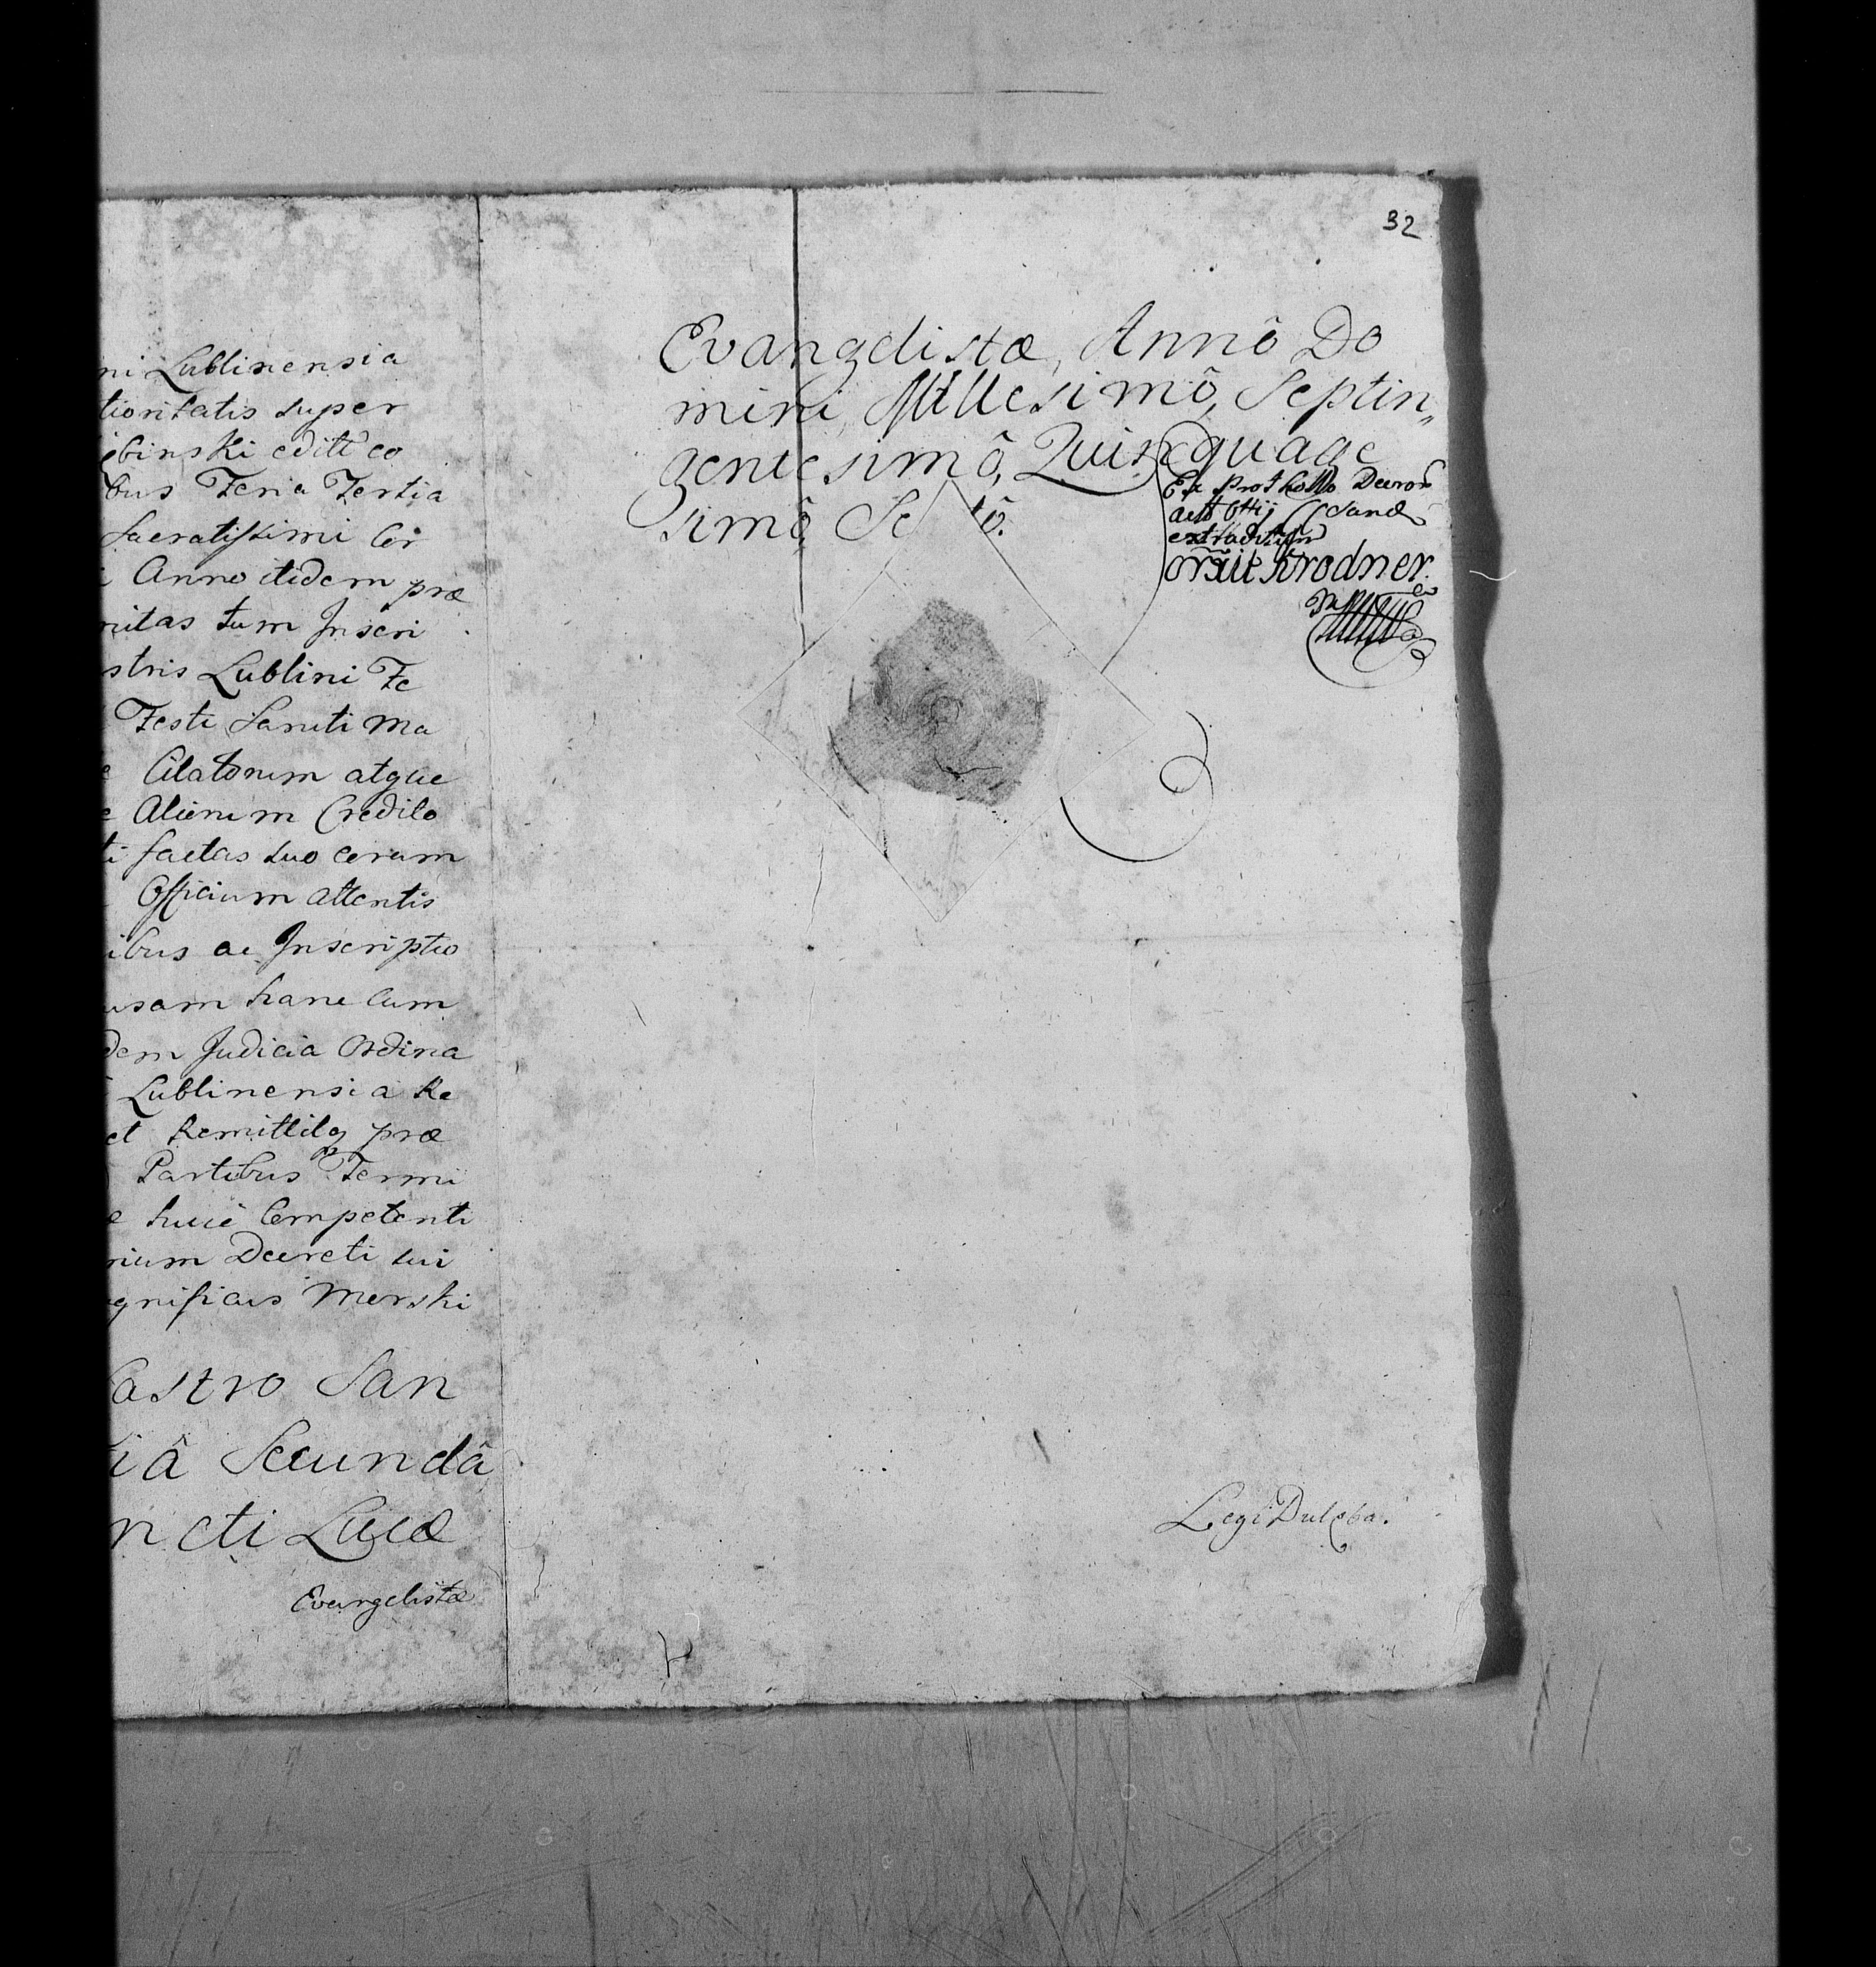 ni Lublinensia
tioritatis super
binski editt eo
bus Feria Tertia
Sacratissimi Cor
Anno itidem præ
nitas tum Inscri
stris Lublini Fe
Festi Sancti Ma
Citatorum atque
Alienum Credito
ti factas suo ce rum
Officium attentis
ibus ac Inscriptio
usam hanc Cum
dem Judicia Ordina
Lublinensia Re
et Remittitq præ
Partibus Termi
huic Competenti
rium Decreti sui
gnificus Merski
Castro San
iâ Secundâ
ncti Lucæ
Evangelistæ
32
Evangelistæ, Annô Do
mini Millesimô, Septin„
gentesimô, Quinquage
simô Se tô.
Ex Prothollo Decron
extraditum
Krodner
Legi Dulęba.